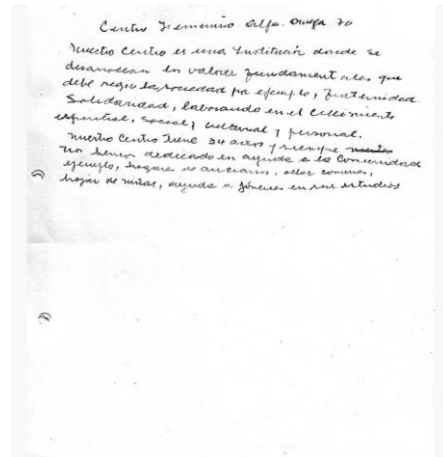 Centro Femenino Alfa. Omega 70
Nuestro Centro es una Institución donde se
desarrollan los valores fundamentales que
debe regir la sociedad por ejemplo, fraternidad
Solidaridad, laborando en el Crecimiento
espiritual, social, cultural y personal.
Nuestro Centro tiene 34 años y siempre
nos hemos dedicado en ayuda a la Comunidad
ejemplo, hogares de ancianos, ollas comunes,
hogar de niñas, ayuda a jóvenes en sus estudios